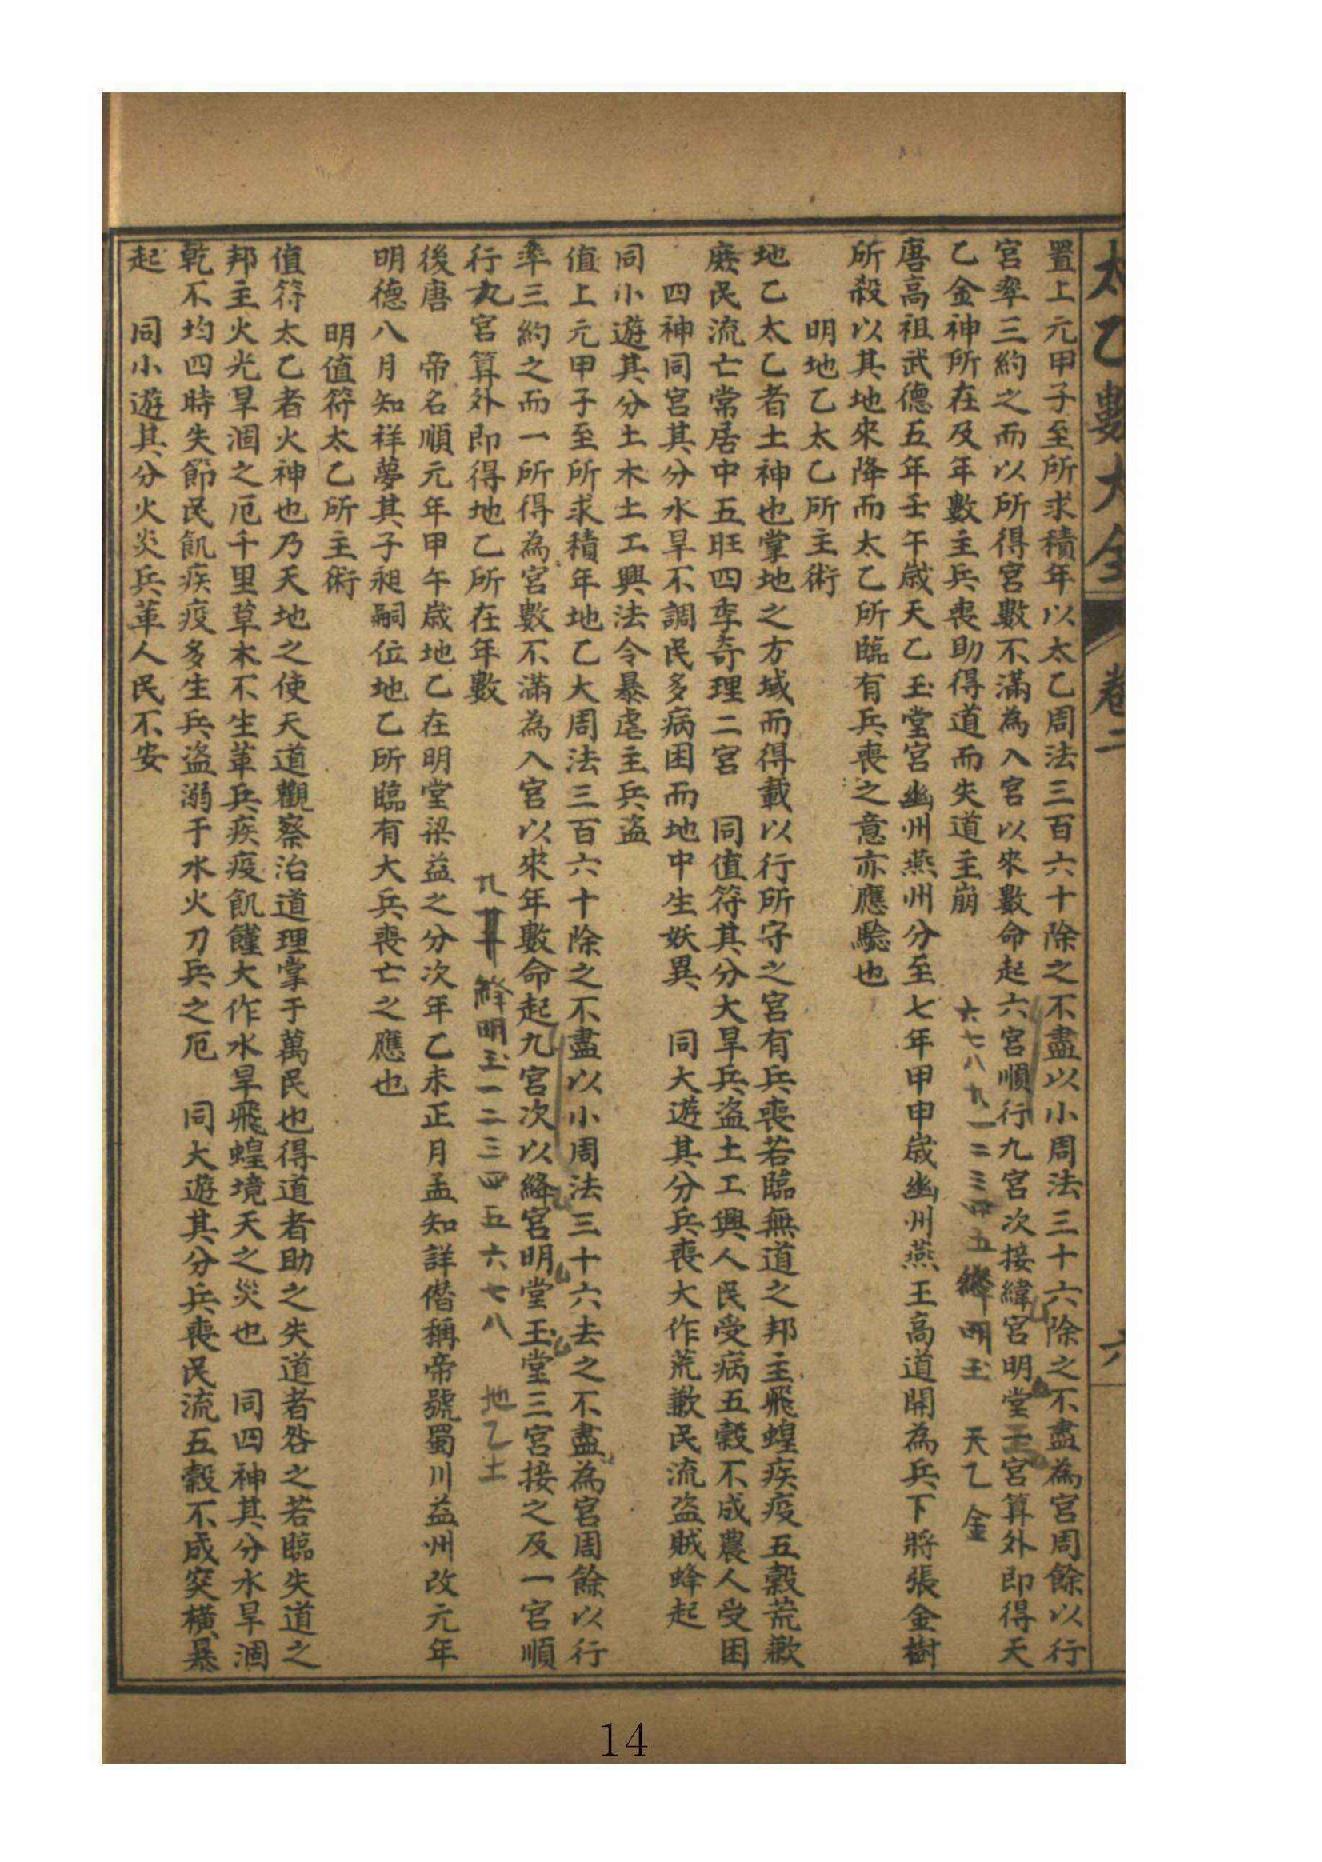 太乙數大全 卷二 六
置上元甲子至所求積年以太乙周法三百六十除之不盡以小周法三十六除之不盡為宮周餘以行
宮率三約之而以所得宮數不滿為入宮以來數命起六宮順行九宮次接緯宮明堂玉宮算外即得天
乙金神所在及年數主兵喪助得道而失道主崩 六七八九一二三四五絳明玉 天乙金
唐高祖武德五年壬午歲天乙玉堂宮幽州燕州分至七年甲申歲幽州燕王高道開為兵下將張金樹
所殺以其地來降而太乙所臨有兵喪之意亦應驗也
明地乙太乙所主術
地乙太乙者土神也掌地之方域而得載以行所守之宮有兵喪若臨無道之邦主飛蝗疾疫五穀荒歉
民流亡常居中五旺四季寄理二宮 同值符其分大旱兵盜土工興人民受病五穀不成農人受困
四神同宮其分水旱不調民多病困而地中生妖異 同大遊其分兵喪大作荒歉民流盜賊蜂起
同小遊其分土木土工興法令暴虐主兵盜
值上元甲子至所求積年地乙大周法三百六十除之不盡以小周法三十六去之不盡為宮周餘以行
率三約之而一所得為宮數不滿為入宮以來年數命起九宮次以絳宮明堂玉堂三宮接之及一宮順
行九宮算外即得地乙所在年數 九 絳明玉一二三四五六七八 地乙土
後唐 帝名順元年甲午歲地乙在明堂梁益之分次年乙未正月孟知詳僭稱帝號蜀川益州改元年
明德八月知祥夢其子昶嗣位地乙所臨有大兵喪亡之應也
明值符太乙所主術
值符太乙者火神也乃天地之使天道觀察治道理掌于萬民也得道者助之失道者咎之若臨失道之
邦主火光旱涸之厄千里草木不生革兵疾疫飢饉大作水旱飛蝗境天之災也 同四神其分水旱涸
乾不均四時失節民飢疾疫多生兵盜溺于水火刀兵之厄 同大遊其分兵喪民流五穀不成突橫暴
起 同小遊其分火炎兵革人民不安
14